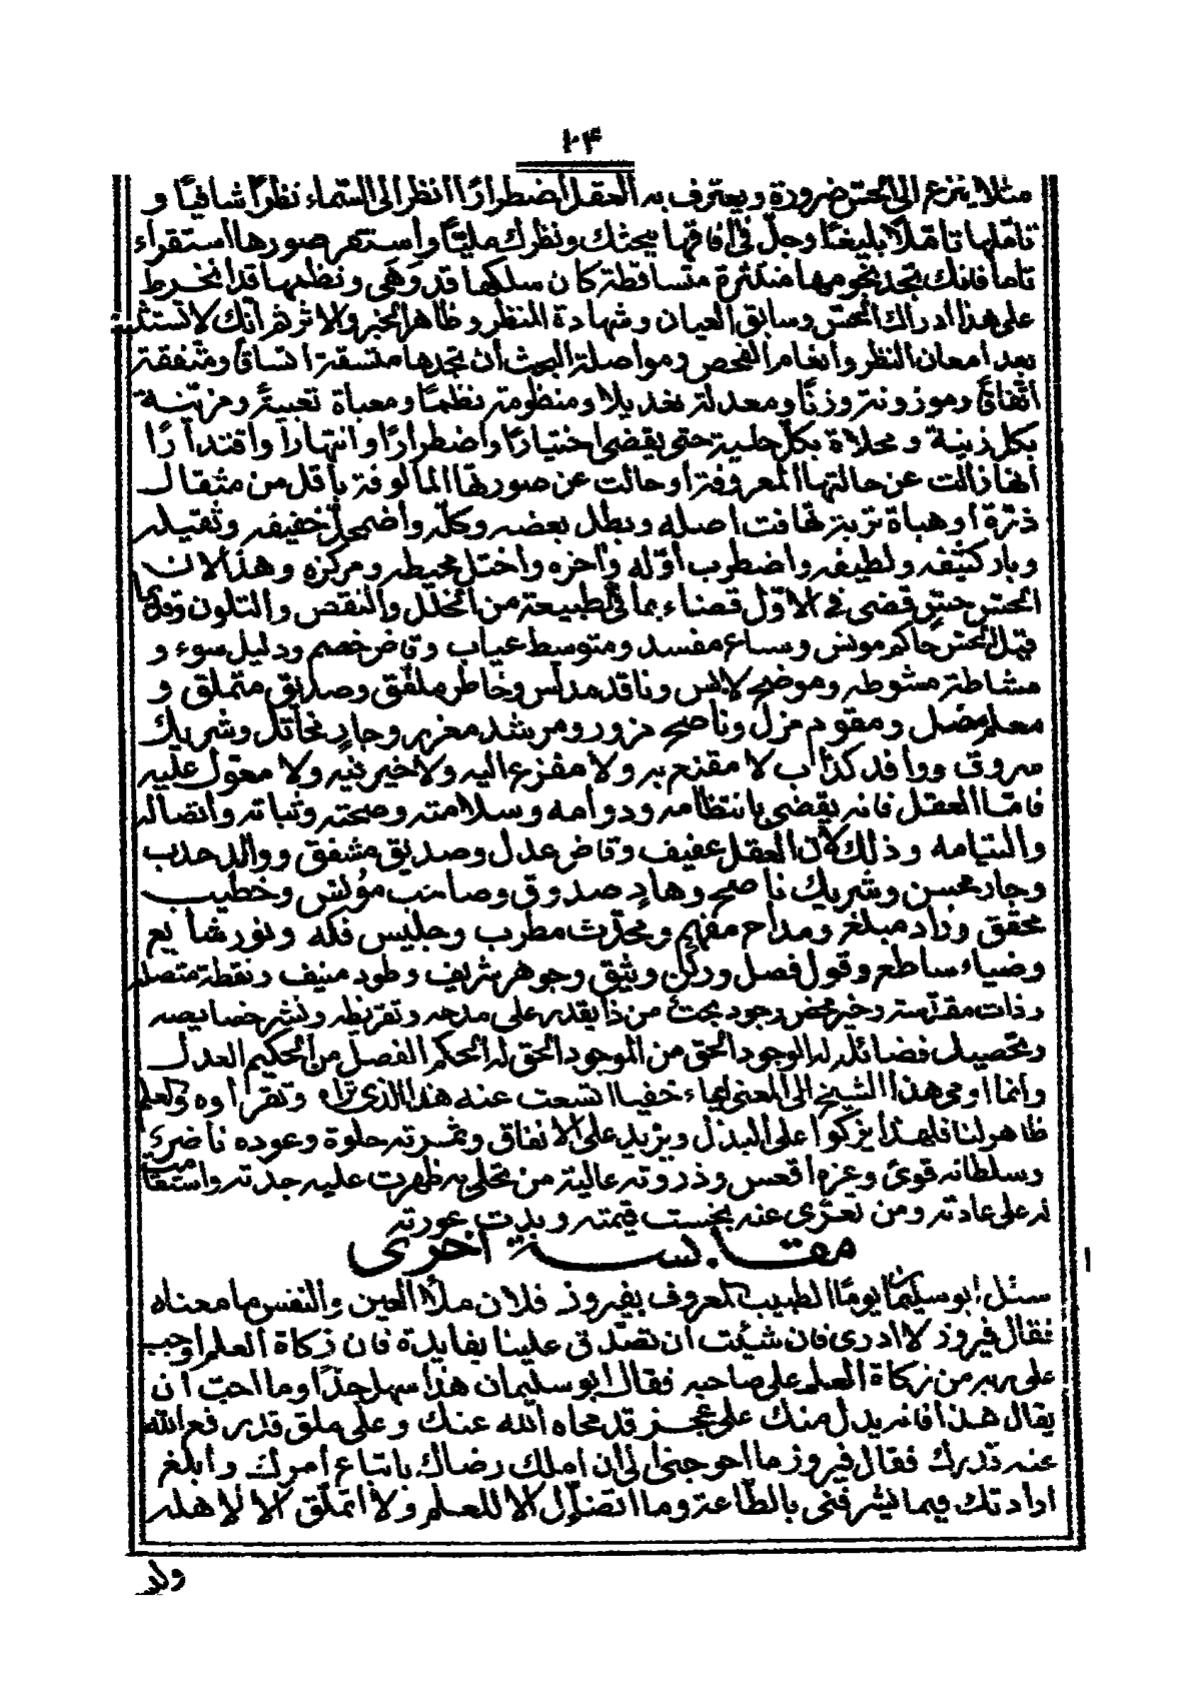 ٢٤
مثلا ينزع الى الحسّ ضرورة ويعترف به العقل اضطرارًا انظر الى السّماء نظرًا شافيًا و
تامّلها تامّلًا بليغًا وجلّ في افاقها ببحثك ونظرك مليًّا واستقر صورها استقراء
تاما فانك تجد نجومها منتثرة متساقطة كان سلكها قد وَهَى ونظمها قد انخرط
على هذا ادراك الحسّ وسابق العيان وشهادة المنظر وظاهر الخبر والاثر ثم انّك لا تستثبت
بعد امعان النظر وانعام الفحص ومواصلة البحث أن تجدها متسقة اتساقًا ومتّفقة
اتّفاقًا وموزونة وزنًا ومعدلة تعديلا ومنظومة نظمًا ومعباة تعبيةً ومزيّنة
بكل زينة ومحلاة بكلّ حلية حتى يقضى اختيارًا واضطرارًا وانتهارًا واقتدارًا
انّها زالت عن حالتها المعروفة او حالت عن صورتها المالوفة باقل من مثقال
ذرّة او هباة تربة تهافت اصله وبطل بعضه وكلّه واضمحلّ خفيفه وثقيله
وباد كثيفه ولطيفه واضطرب أوّله وآخره واختلّ محيطه ومركزه وهذا لان
الحسّ حسّ قضى في الاوّل قضاء بما فى الطبيعة من التخلّل والنقص والتلون وقدما
قيل الحسّ حاكم مونس وساع مفسد ومتوسط عياب وقاض خصم ودليل سوء و
مشاطة مشوطه وموضح لابس وناقد مدلس وخاطر ملفّق وصديق متملق و
معلم مضل ومقوم مزل وناصح مزور ومرشد مغرر وجادٍ نحاتل وشريك
سروق ووافد كذاب لا مقنع به ولا مفزع اليه ولا خير فيه ولا معوّل عليه
فامّا العقل فانه يقضى بانتظامه ودوامه وسلامته وصحته وثباته واتصاله
والتيامه وذلك لأن العقل عفيف وقاض عدل وصديق مشفق ووالد حدب
وجار محسن وشريك ناصح وهادٍ صدوق وصاحب مؤنس وخطيب
محقق وزاد مبلغ ومداح مفهم ومحدّث مطرب وجليس فكه ونور شايع
وضياء ساطع وقول فصل وركن وثيق وجوهر شريف وطود منيف ونقطة متصلة
وذات مقدّسة وخير محض وجود بحت من ذا يقدر على مدحه وتقريظه ونشر خصايصه
وتحصيل فضائله له الوجود الحق من الموجود الحق له الحكم الفصل من الحكيم العدل
وانما اومى هذا الشيخ الى المعنى ايماء خفيا اتسعت عنه هذا الذى تراه وتقرأوه ولعلم
ظاهر لنا فلهذا يزكوا على البذل ويزيد على الانفاق وثمرته حلوة وعوده ناضرى
وسلطانه قوىّ وعزه اقعس وذروته عالية من تحلى به ظهرت عليه جدته واستقامت
له على عادته ومن تعرّى عنه بخست قيمته وبدت عورته
مقابسة اخرى
سئل ابو سليمان يومًا الطبيب المعروف بفيروز فلان ملأ العين والنفس ما معناه
فقال فيروز لا ادرى فان شئت أن تصدّق علينا بفايدة فان زكاة العلم اوجب
على ربه من زكاة العلم على صاحبه فقال ابو سليمان هذا سهل جدًّا وما احبّ أن
يقال هذا فانه يدل منك على عجز قد محاه الله عنك وعلى ملق قد رفع الله
عنه قدرك فقال فيروز ما احوجنى الى ان املك رضاك باتباع أمرك وأبلغ
ارادتك فيما يشرفنى بالطّاعة وما اتضاءل الا للعلم ولا اتملّق الا لاهله
وله